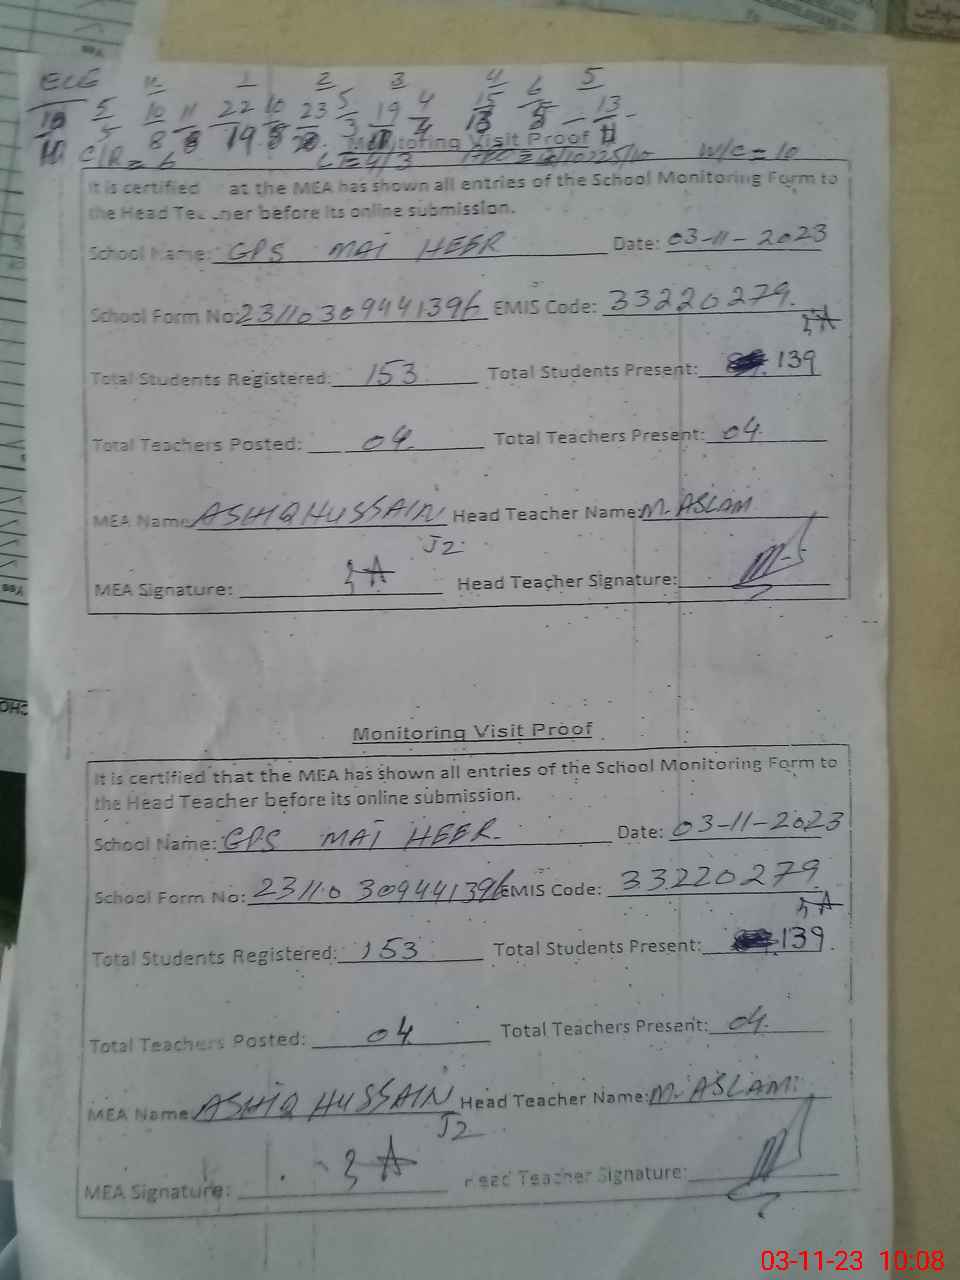 ECE 1 2 3 4 6 5
5 10 11 22 10 23 5 19 4 15 13
5 8 8 19 3 4 13 11
Monitoring Visit Proof
C/R = 6 W/C = 10
It is certified at the MEA has shown all entries of the School Monitoring Form to
the Head Teacher before its online submission.
School Name: GPS MAI HEER Date: 03-11-2023
School Form No: 23110309441396 EMIS Code: 33220279
Total Students Registered: 153 Total Students Present: 139
Total Teachers Posted: 04 Total Teachers Present: 04
MEA Name ASHIQ HUSSAIN Head Teacher Name: M. ASLAM
J2
MEA Signature: Head Teacher Signature:
Monitoring Visit Proof
It is certified that the MEA has shown all entries of the School Monitoring Form to
the Head Teacher before its online submission.
School Name: GPS MAI HEER Date: 03-11-2023
School Form No: 23110309441396 EMIS Code: 33220279
Total Students Registered: 153 Total Students Present: 139
Total Teachers Posted: 04 Total Teachers Present: 04
MEA Name ASHIQ HUSSAIN Head Teacher Name: M. ASLAM
J2
MEA Signature: Head Teacher Signature:
03-11-23 10:08